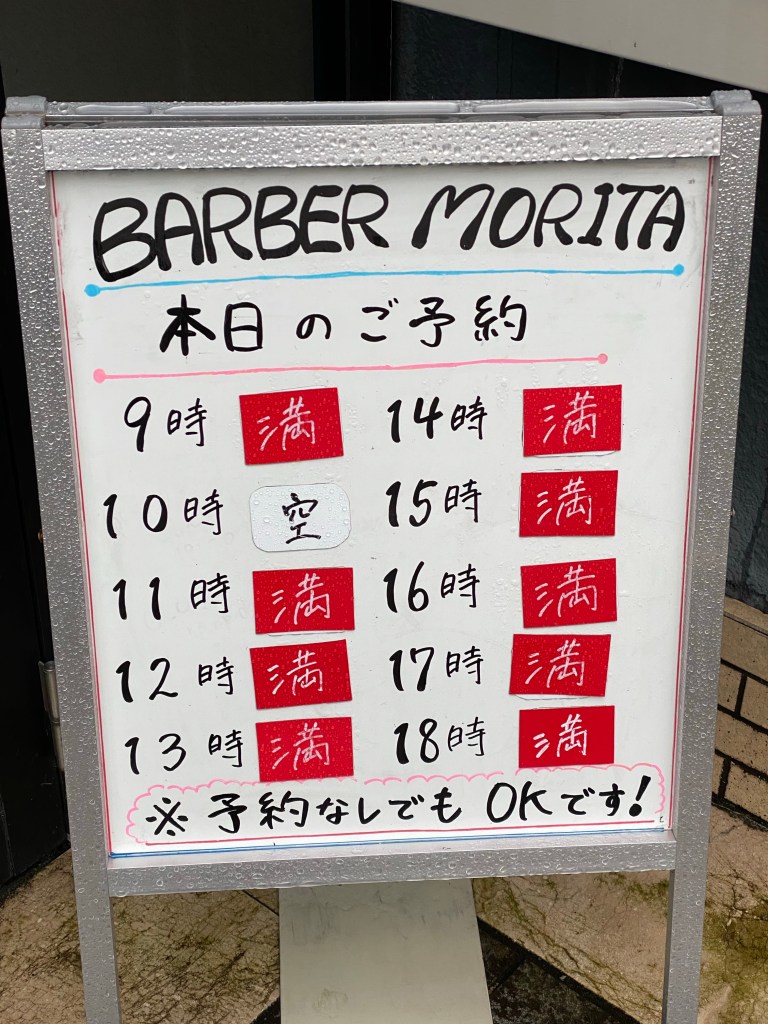 BARBER MORITA
本日のご予約
9時 満
10時 空
11時 満
12時 満
13時 満
14時 満
15時 満
16時 満
17時 満
18時 満
※予約なしでも OKです!